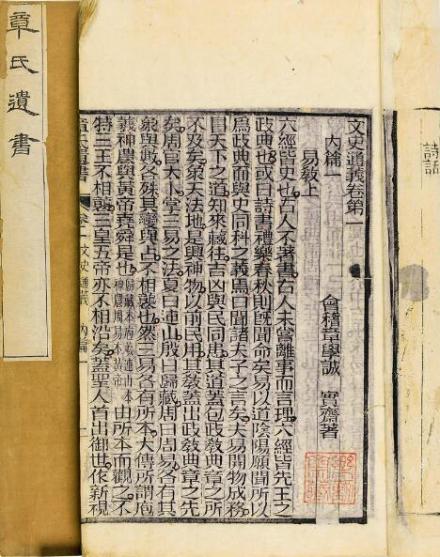 詩話
文史通義卷第一
内篇一 會稽章學誠 實齋著
易敎上
六經皆史也古人不著書古人未嘗離事而言理六經皆先王之
政典也或曰詩書禮樂春秋則既聞命矣易以道陰陽願聞所以
爲政典而與史同科之義焉曰聞諸夫子之言矣夫易開物成務
冒天下之道知來藏往吉凶與民同患其道蓋包政敎典章之所
不及矣象天法地是興神物以前民用其敎蓋出政敎典章之先
矣周官太卜掌三易之法夏曰連山殷曰歸藏周曰周易各有其
象與數各殊其變與占不相襲也然三易各有所本大傳所謂庖
羲神農與黃帝堯舜是也歸藏本庖羲連山本神農周易本黃帝由所本而觀之不
特三王不相襲三皇五帝亦不相沿矣蓋聖人首出御世作新視
章氏遺書 卷一 文史通義 内篇一
章氏遺書